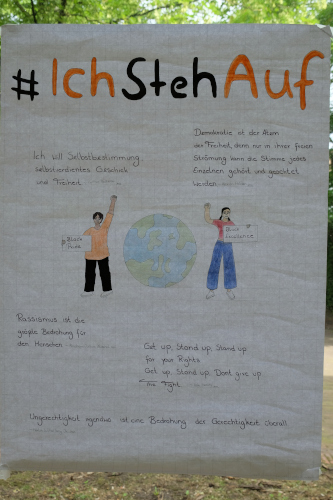 #IchStehAuf
Demokratie ist der Atem
der Freiheit, denn nur in ihrer freien
Strömung kann die Stimme jedes
Einzelnen gehört und geachtet
werden.
Ich will Selbstbestimmung,
selbstverdientes Geschick
und Freiheit
Black
Pride
Black
Excellence
Rassismus ist die
größte Bedrohung für
den Menschen
Get up, Stand up, Stand up
for your Rights
Get up, Stand up, Dont give up
the Fight
Ungerechtigkeit irgendwo ist eine Bedrohung der Gerechtigkeit überall